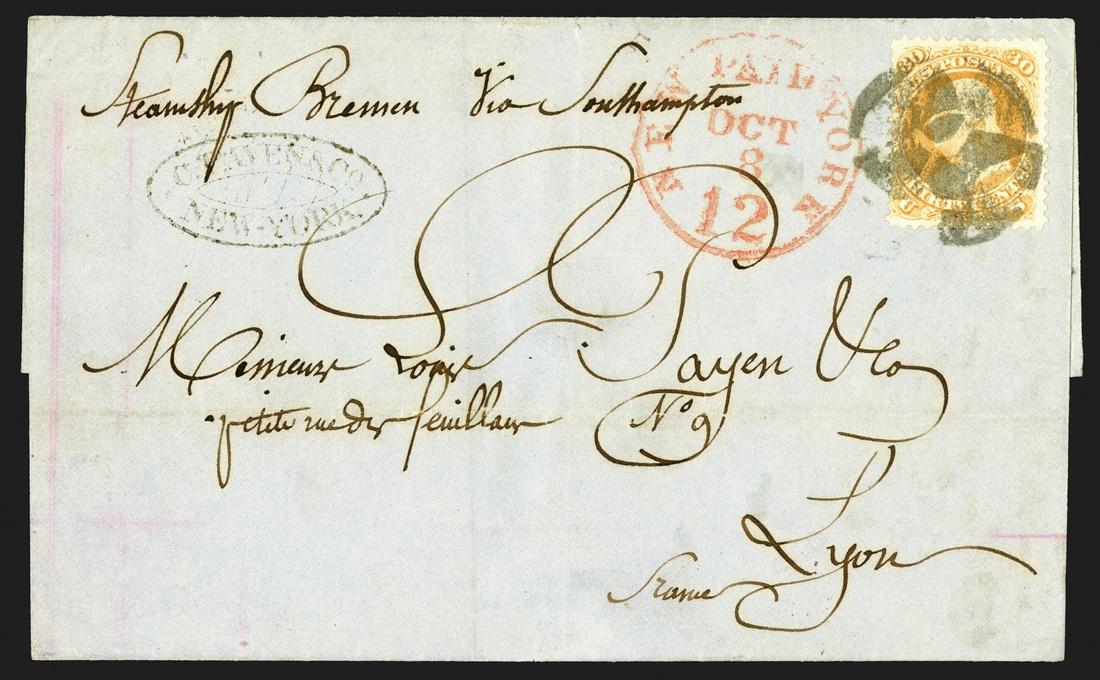 Steamship Bremen Via Southampton
NEW YORK
PAID
OCT
8
12
30 U.S. POSTAGE 30
THIRTY CENTS
U S
& Co.
NEW-YORK
Messieurs Louis Payen & Co
petite rue des feuillans No 9
Lyon
France